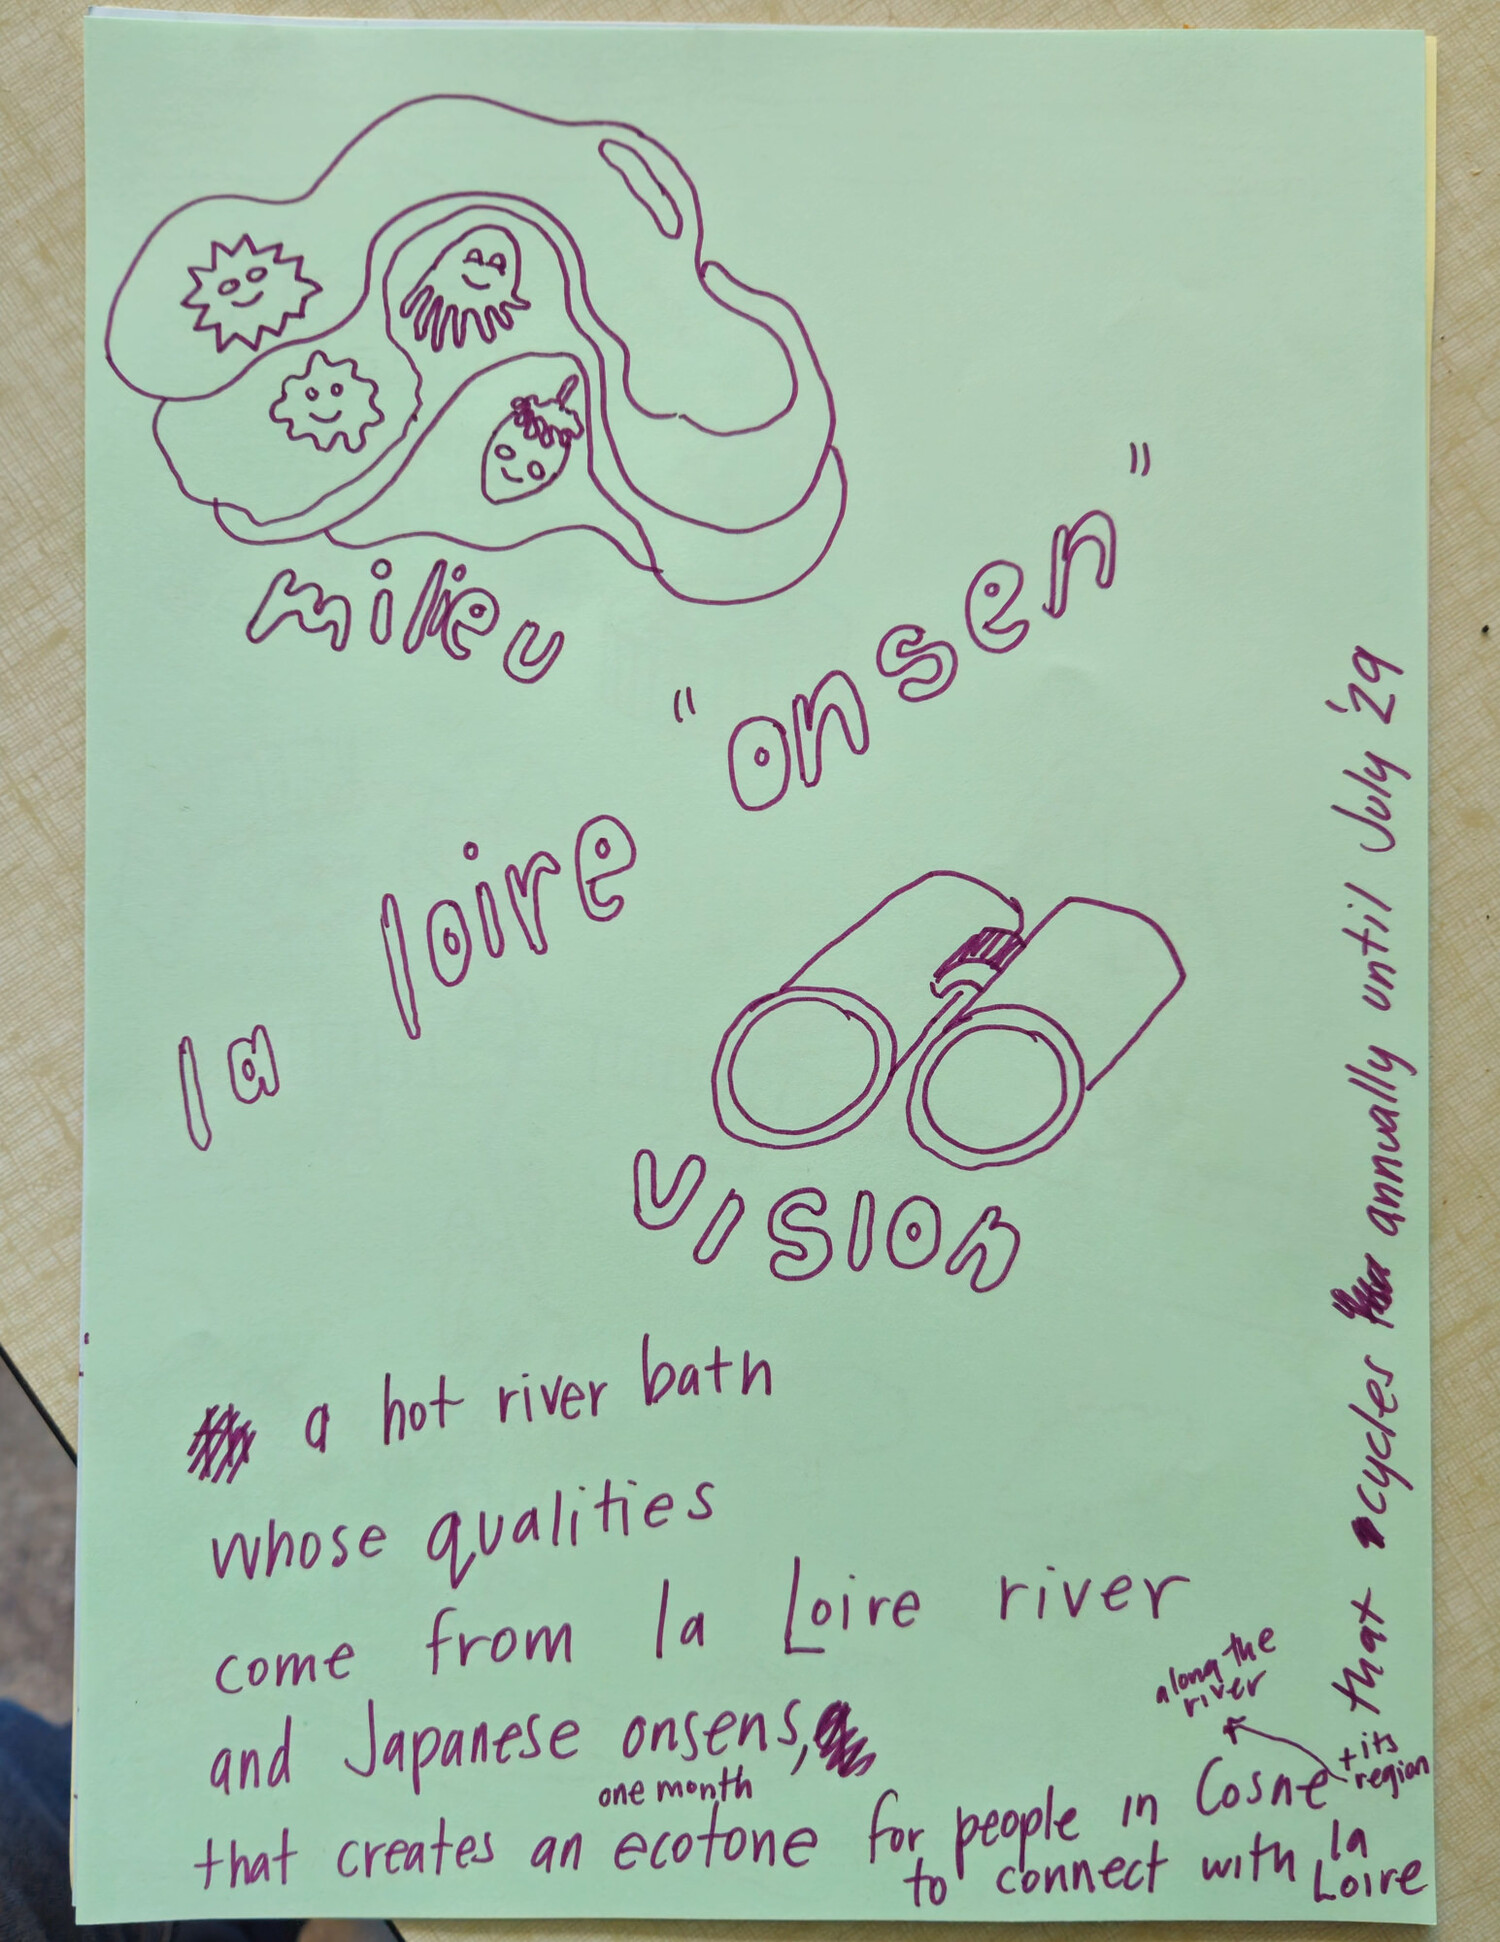 milieu
la loire "onsen"
vision
a hot river bath
whose qualities
come from la Loire river
and Japanese onsens,
one month
that creates an ecotone for people in Cosne
+ its
region
along the
river
to connect with la
Loire
that cycles annually until July '29